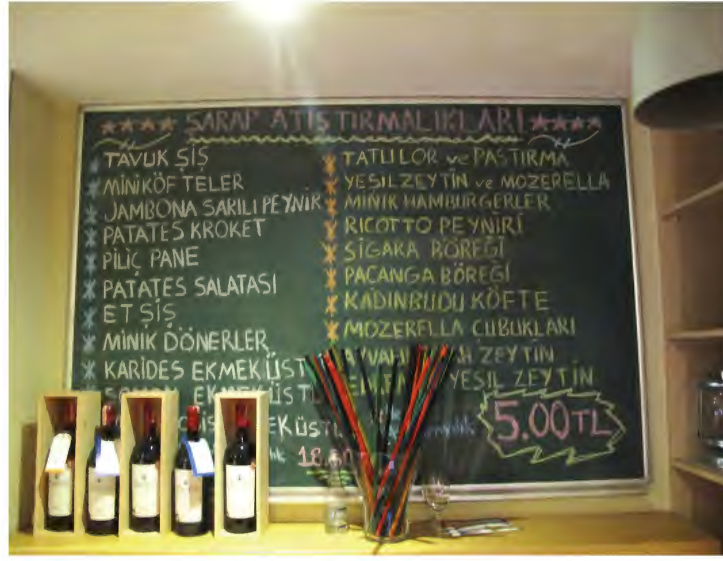 ŞARAP ATIŞTIRMALIKLARI
TAVUK ŞİŞ
MİNİKÖFTELER
JAMBONA SARILI PEYNİR
PATATES KROKET
PİLİÇ PANE
PATATES SALATASI
ET ŞİŞ
MİNİK DÖNERLER
KARİDES EKMEK ÜSTÜ
EKMEK ÜSTÜ
TATLI LOR ve PASTIRMA
YEŞİL ZEYTİN ve MOZERELLA
MİNİK HAMBURGERLER
RICOTTO PEYNİRİ
SİGARA BÖREĞİ
PAÇANGA BÖREĞİ
KADINBUDU KÖFTE
MOZERELLA ÇUBUKLARI
ZEYTİN
YEŞİL ZEYTİN
5.00TL